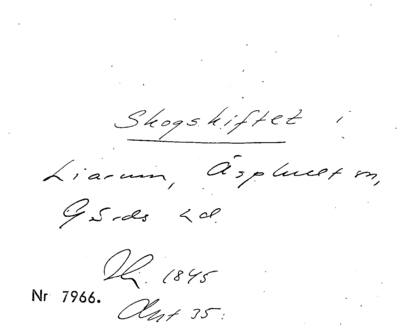 Skogskiftet i
Liarum, Äsphult sn,
Gärds hd
1845
Nr 7966.
Akt 35.